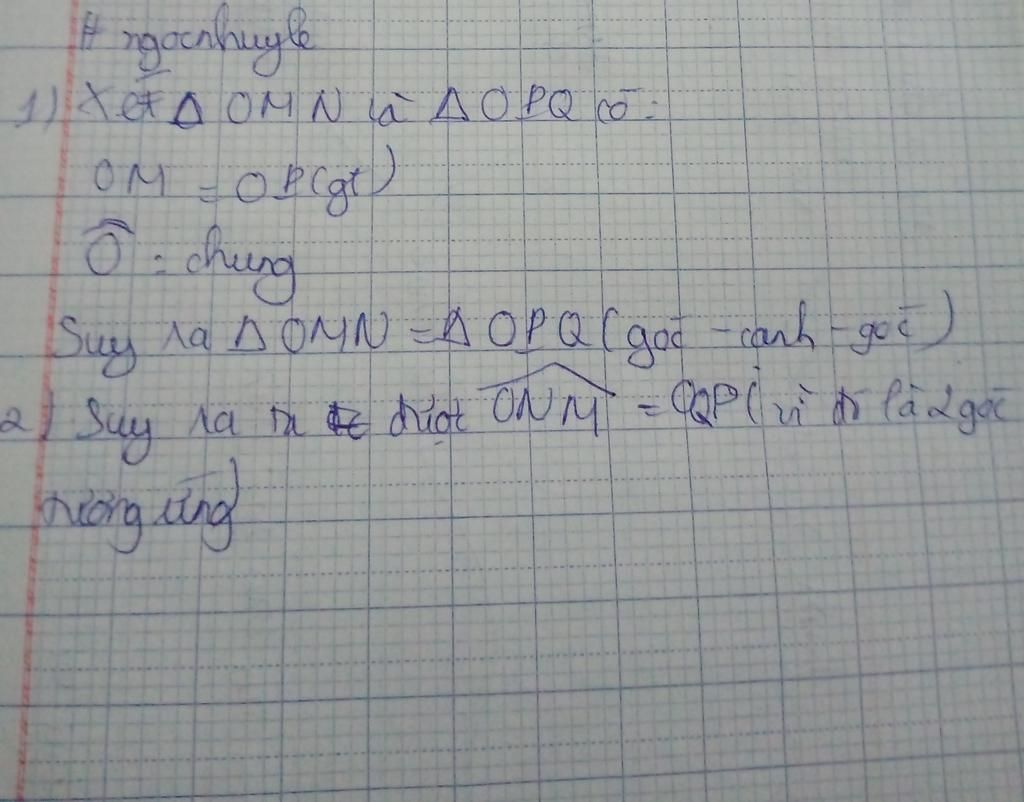 # ngocnhuyle
1) Xét Δ OMN và Δ OPQ có:
OM = OP(gt)
Ô: chung
Suy ra Δ OMN = Δ OPQ (góc - cạnh - góc)
2) Suy ra ta được ONM = OQP (vì đó là 2 góc
tương ứng)